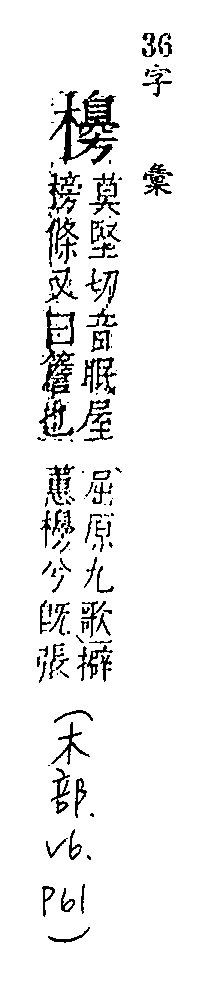 36字彙
櫋
莫堅切音眠屋
榜條又曰簷也
屈原九歌擗
蕙櫋兮既張
(木部.v6.p61)